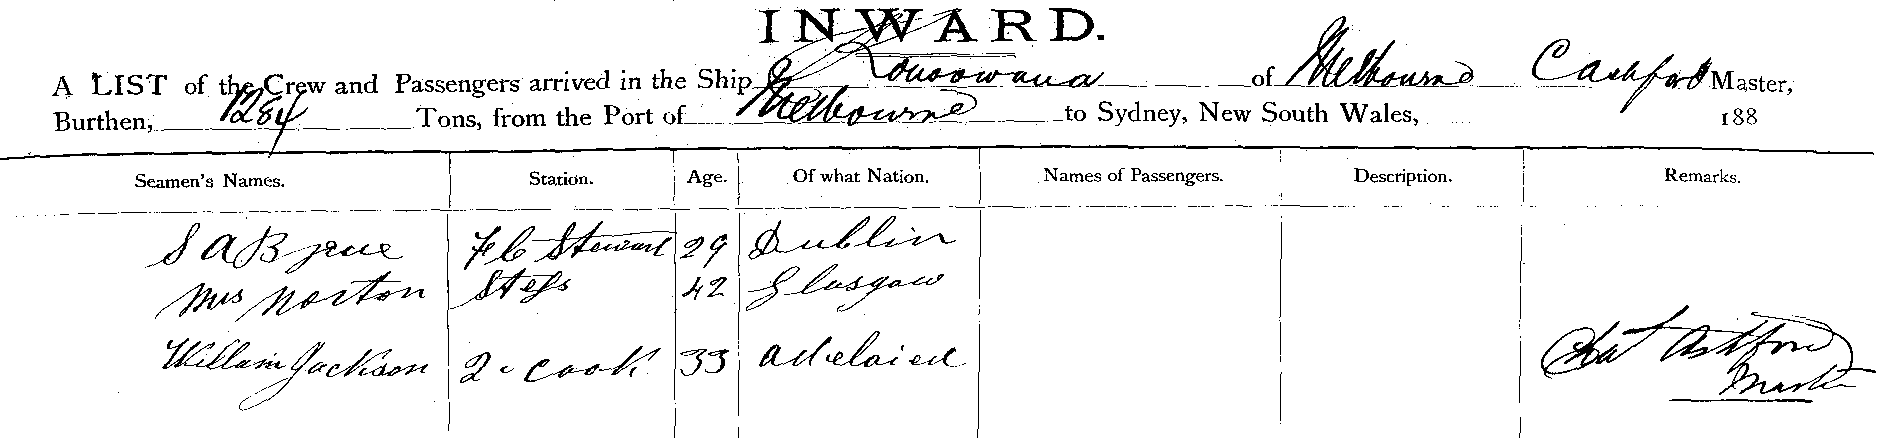 INWARD.
A LIST of the Crew and Passengers arrived in the Ship of Melbourne C Ashford Master,
Burthen, 1284 Tons, from the Port of Melbourne to Sydney, New South Wales, 188
Seamen's Names. Station. Age. Of what Nation. Names of Passengers. Description. Remarks.
S A Byrne F C Steward 29 Dublin
Mrs Norton Stess 42 Glasgow
William Jackson 2 cook 33 Adelaied
Ashford
Master